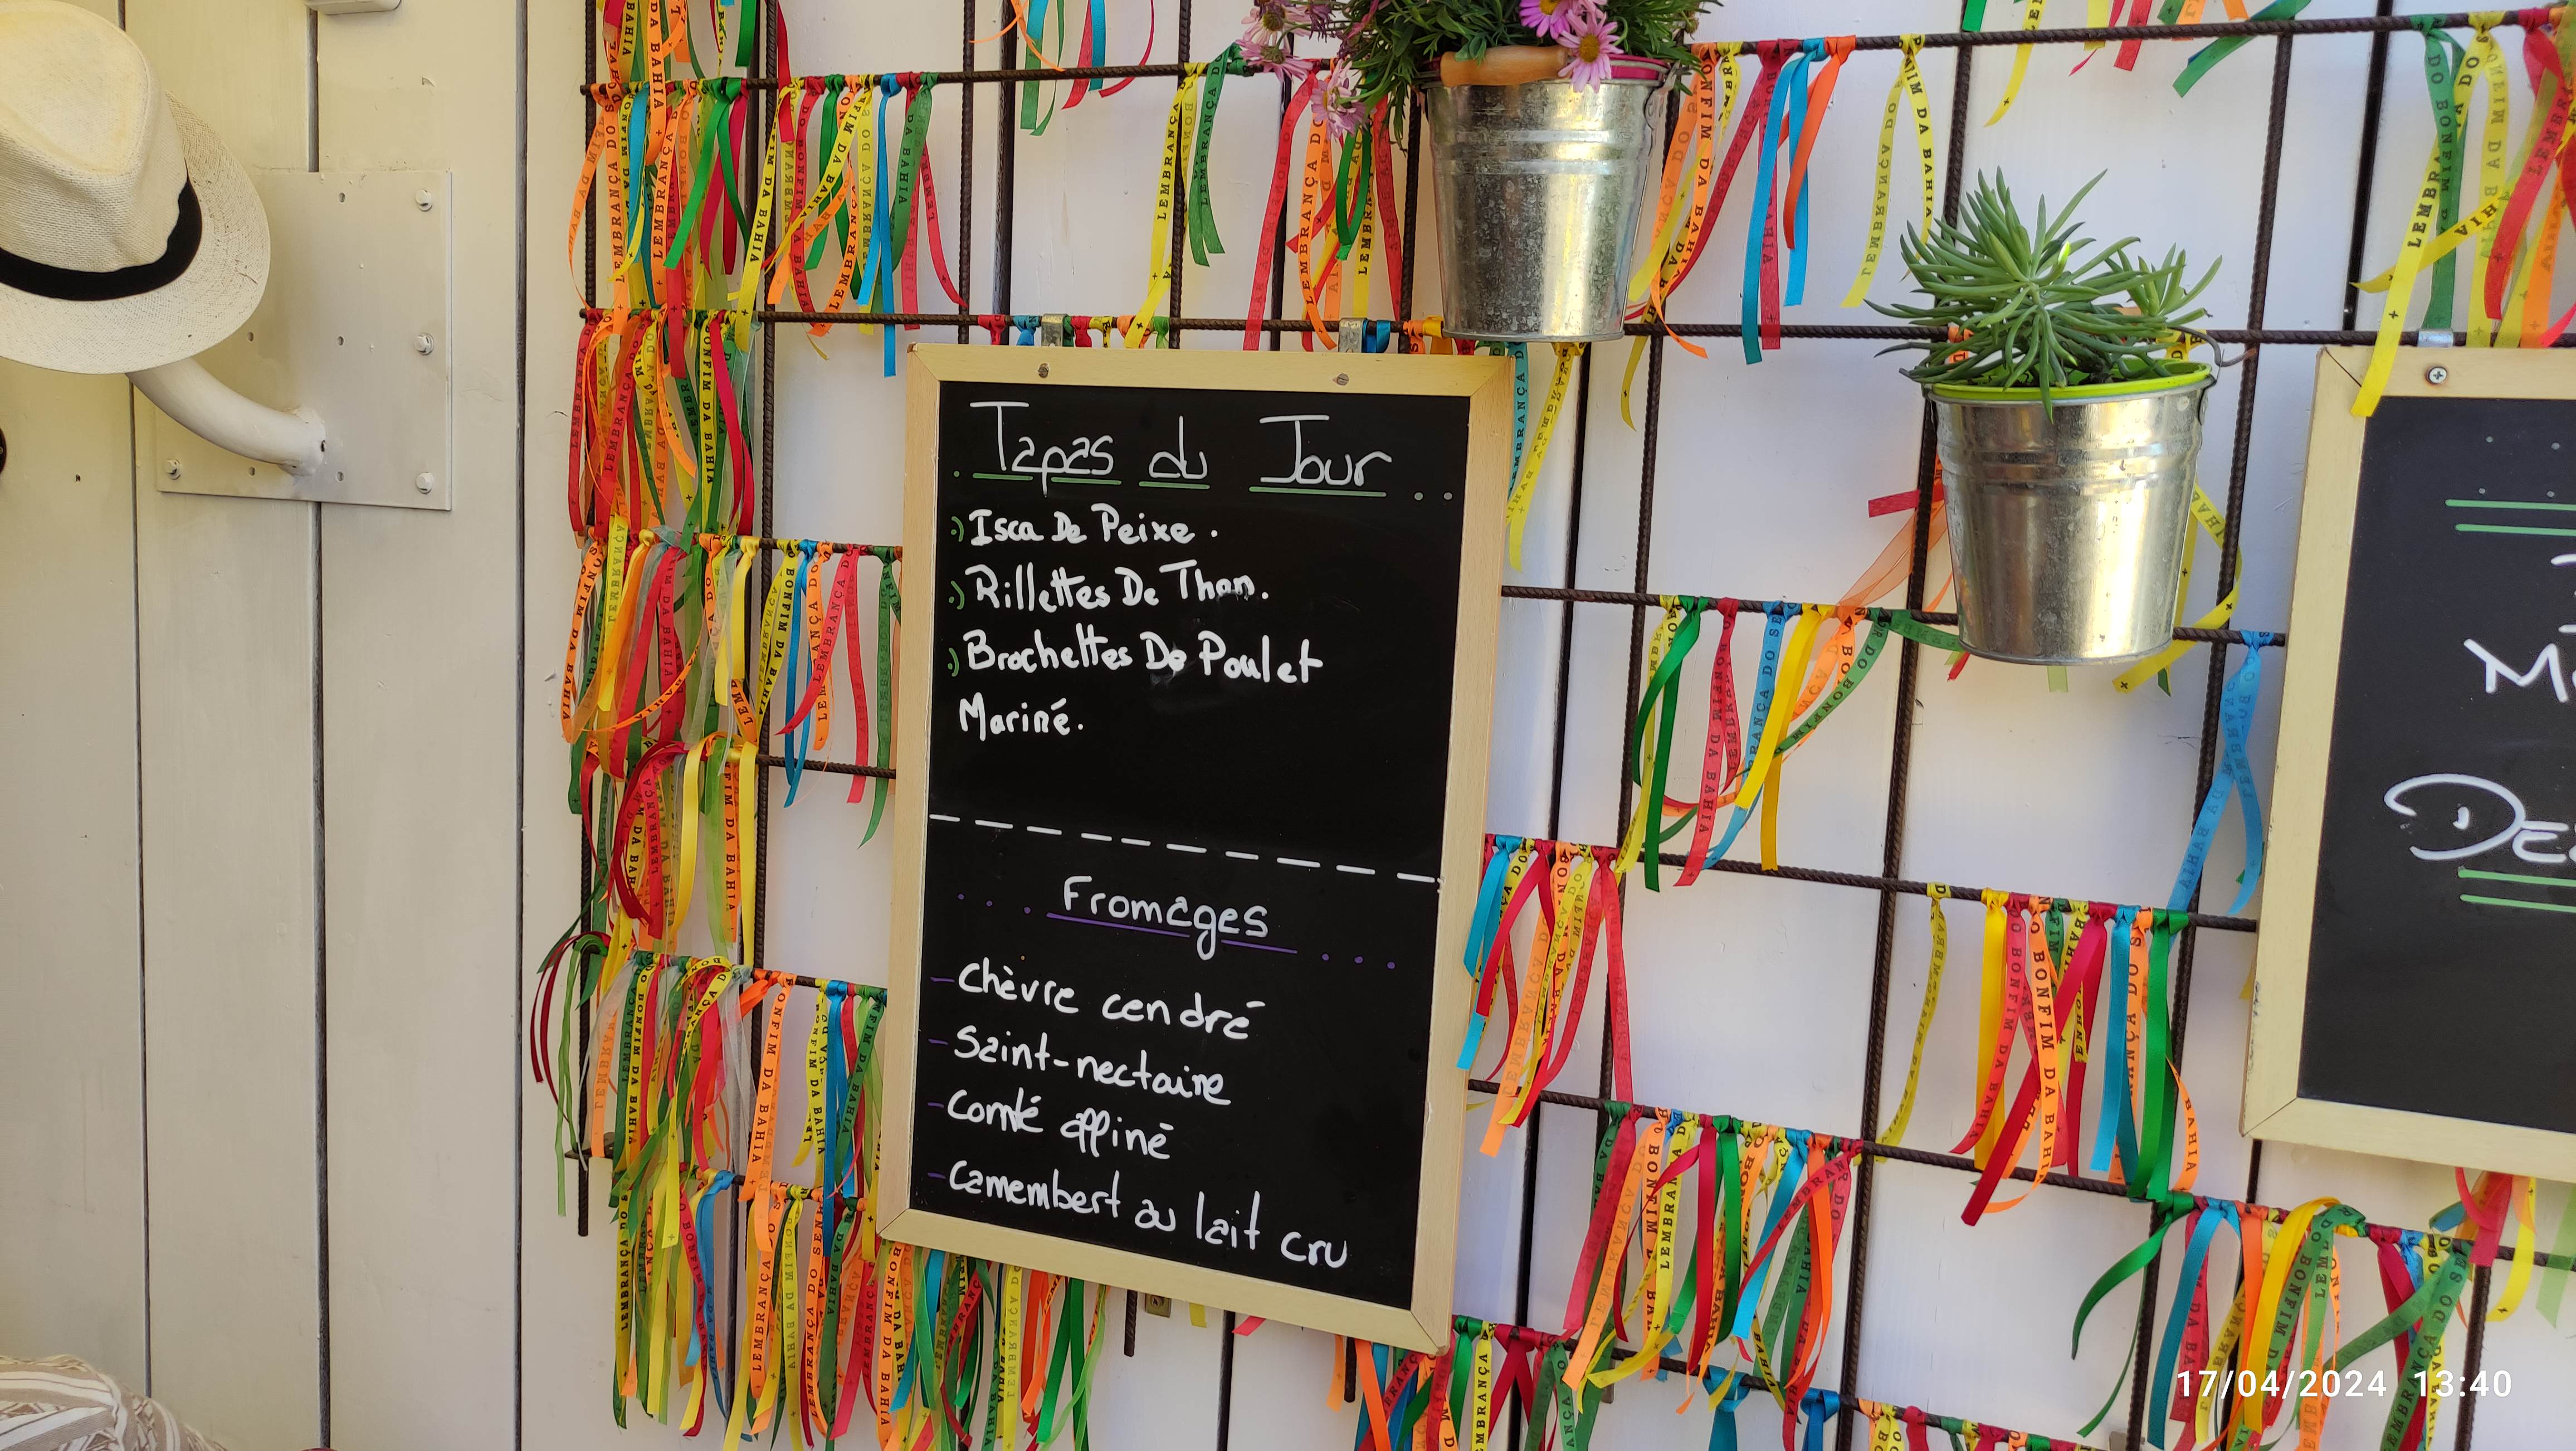 Tapas du Jour ..
Isca De Peixe.
Rillettes De Thon.
Brochettes De Poulet
Mariné.
... Fromages ...
- Chèvre cendré
- Saint-nectaire
- Comté affiné
- Camembert au lait cru
LEMBRANÇA DO SENHOR DO BONFIM DA BAHIA
17/04/2024 13:40